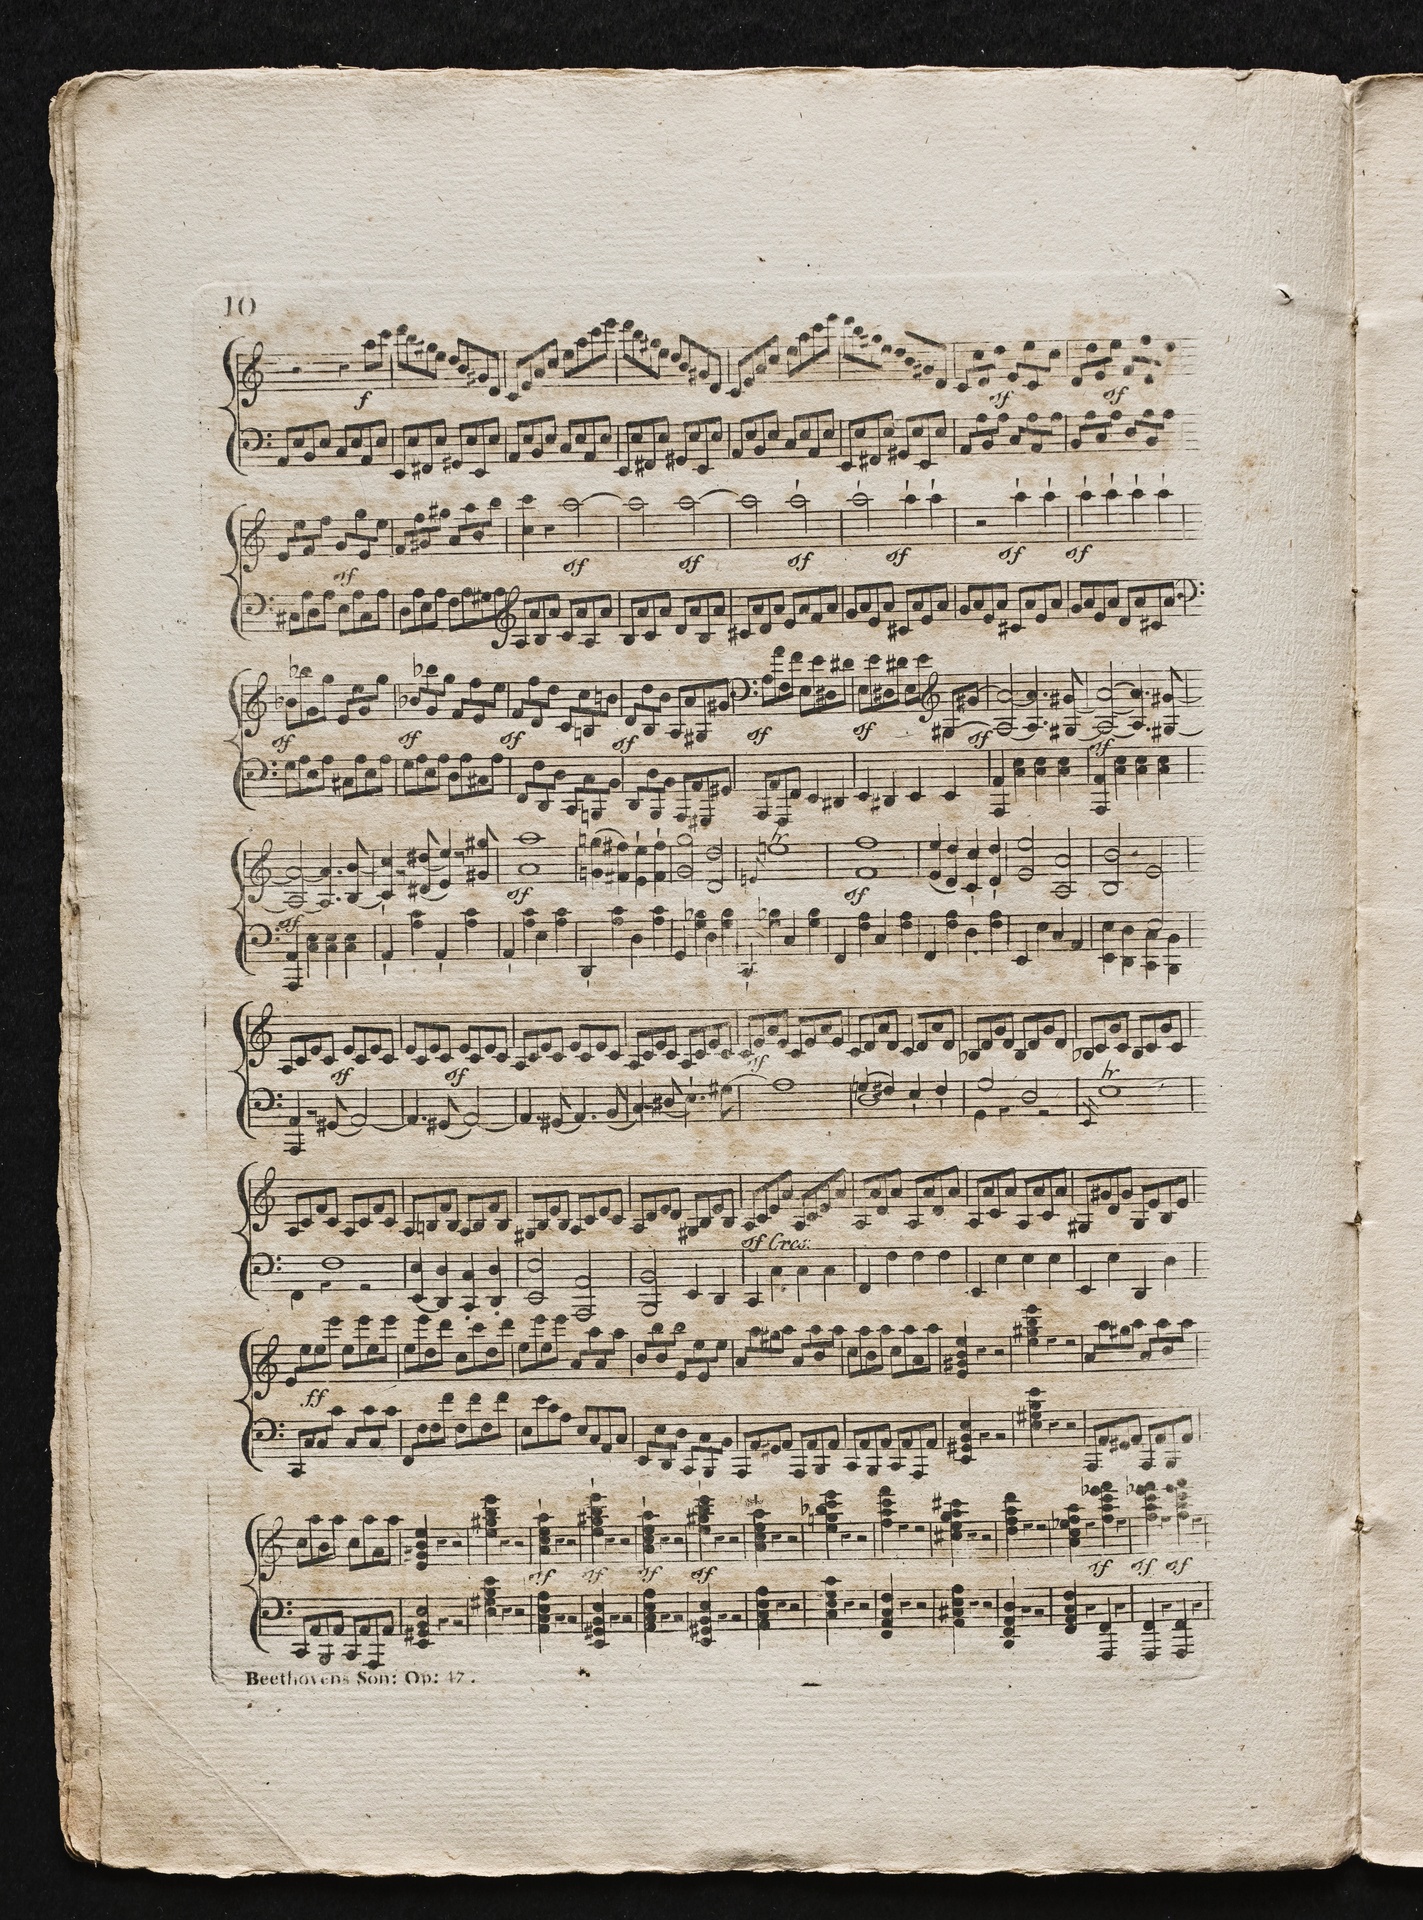 10
f
sf sf
sf
sf sf sf sf sf sf
sf sf sf sf sf sf sf sf
tr
sf sf sf
sf sf sf
tr
sf Cres:
ff
sf sf sf sf sf sf sf
Beethovens Son: Op: 47.